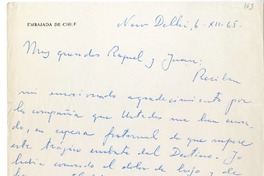 EMBAJADA DE CHILE
New Delhi, 6-XII-65.
Muy queridos Raquel y Juan:
Reciban
mi emocionado agradecimiento por
la compañía que Ustedes me han
do, en esta
este trágico embate del Destino. Yo
había conocido el dolor de hijo y de